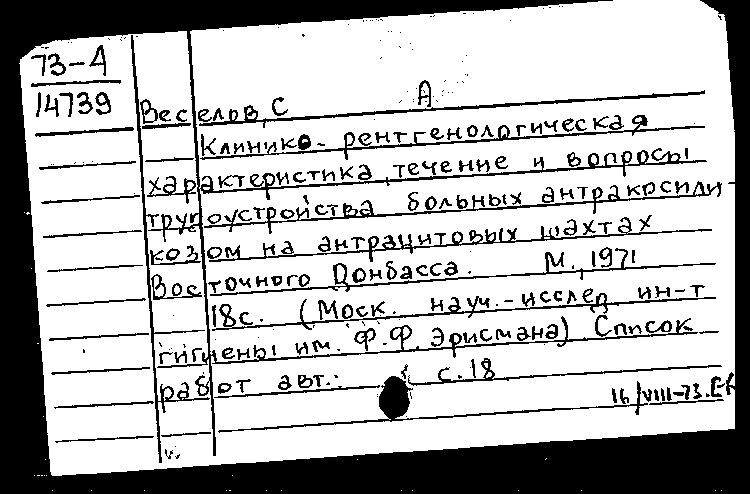 73-А
14739
Веселов, С А
Клинико-рентгенологическая
характеристика, течение и вопросы
трудоустройства больных антракосили-
козом на антрацитовых шахтах
Восточного Донбасса. М., 1971
18с. (Моск. науч.-исслед. ин-т
гигиены им. Ф.Ф. Эрисмана) Список
работ авт.: с.18
16/VIII-73.